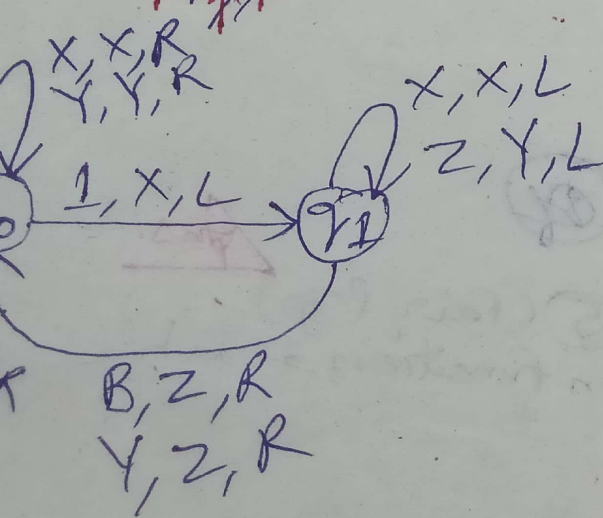 X, X, R
Y, Y, R
X, X, L
Z, Y, L
1, X, L
q1
B, Z, R
Y, Z, R